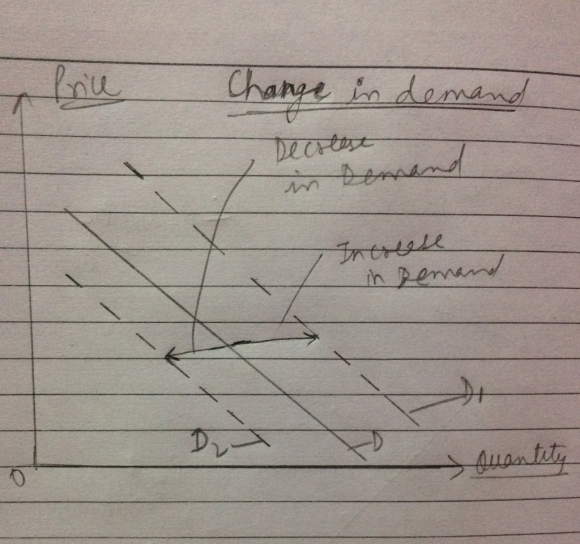 Price
Change in demand
Decrease
in Demand
Increase
in Demand
D1
D2
D
0
Quantity